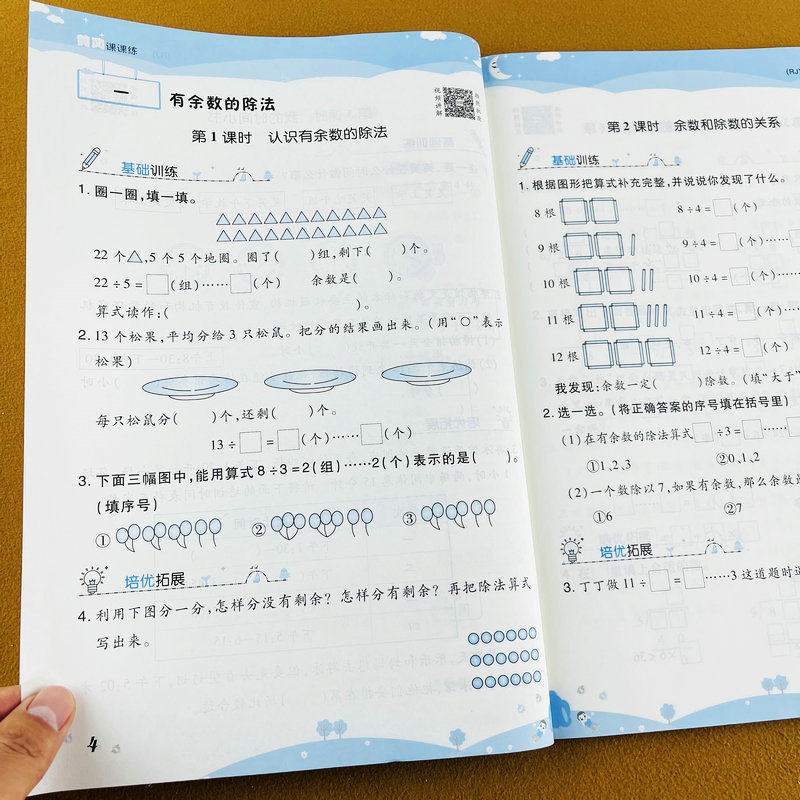 黄冈课课练
一
有余数的除法
视频讲解
第1课时 认识有余数的除法
基础训练
1. 圈一圈,填一填。
22个△,5个5个地圈。圈了( )组,剩下( )个。
22÷5=□(组)……□(个) 余数是( )。
算式读作:( )。
2. 13个松果,平均分给3只松鼠。把分的结果画出来。(用“○”表示
松果)
每只松鼠分( )个,还剩( )个。
13÷□=□(个)……□(个)
3. 下面三幅图中,能用算式8÷3=2(组)……2(个)表示的是( )。
(填序号)
① ② ③
培优拓展
4. 利用下图分一分,怎样分没有剩余?怎样分有剩余?再把除法算式
写出来。
4
(RJ)
第2课时 余数和除数的关系
基础训练
1. 根据图形把算式补充完整,并说说你发现了什么。
8根 8÷4=□(个)
9根 9÷4=□(个)……
10根 10÷4=□(个)……
11根 11÷4=□(个)……
12根 12÷4=□(个)
我发现:余数一定( )除数。(填“大于”
2. 选一选。(将正确答案的序号填在括号里)
(1)在有余数的除法算式□÷3=□……□
①1、2、3 ②0、1、2
(2)一个数除以7,如果有余数,那么余数
①6 ②7
培优拓展
3. 丁丁做11÷□=□……3这道题时